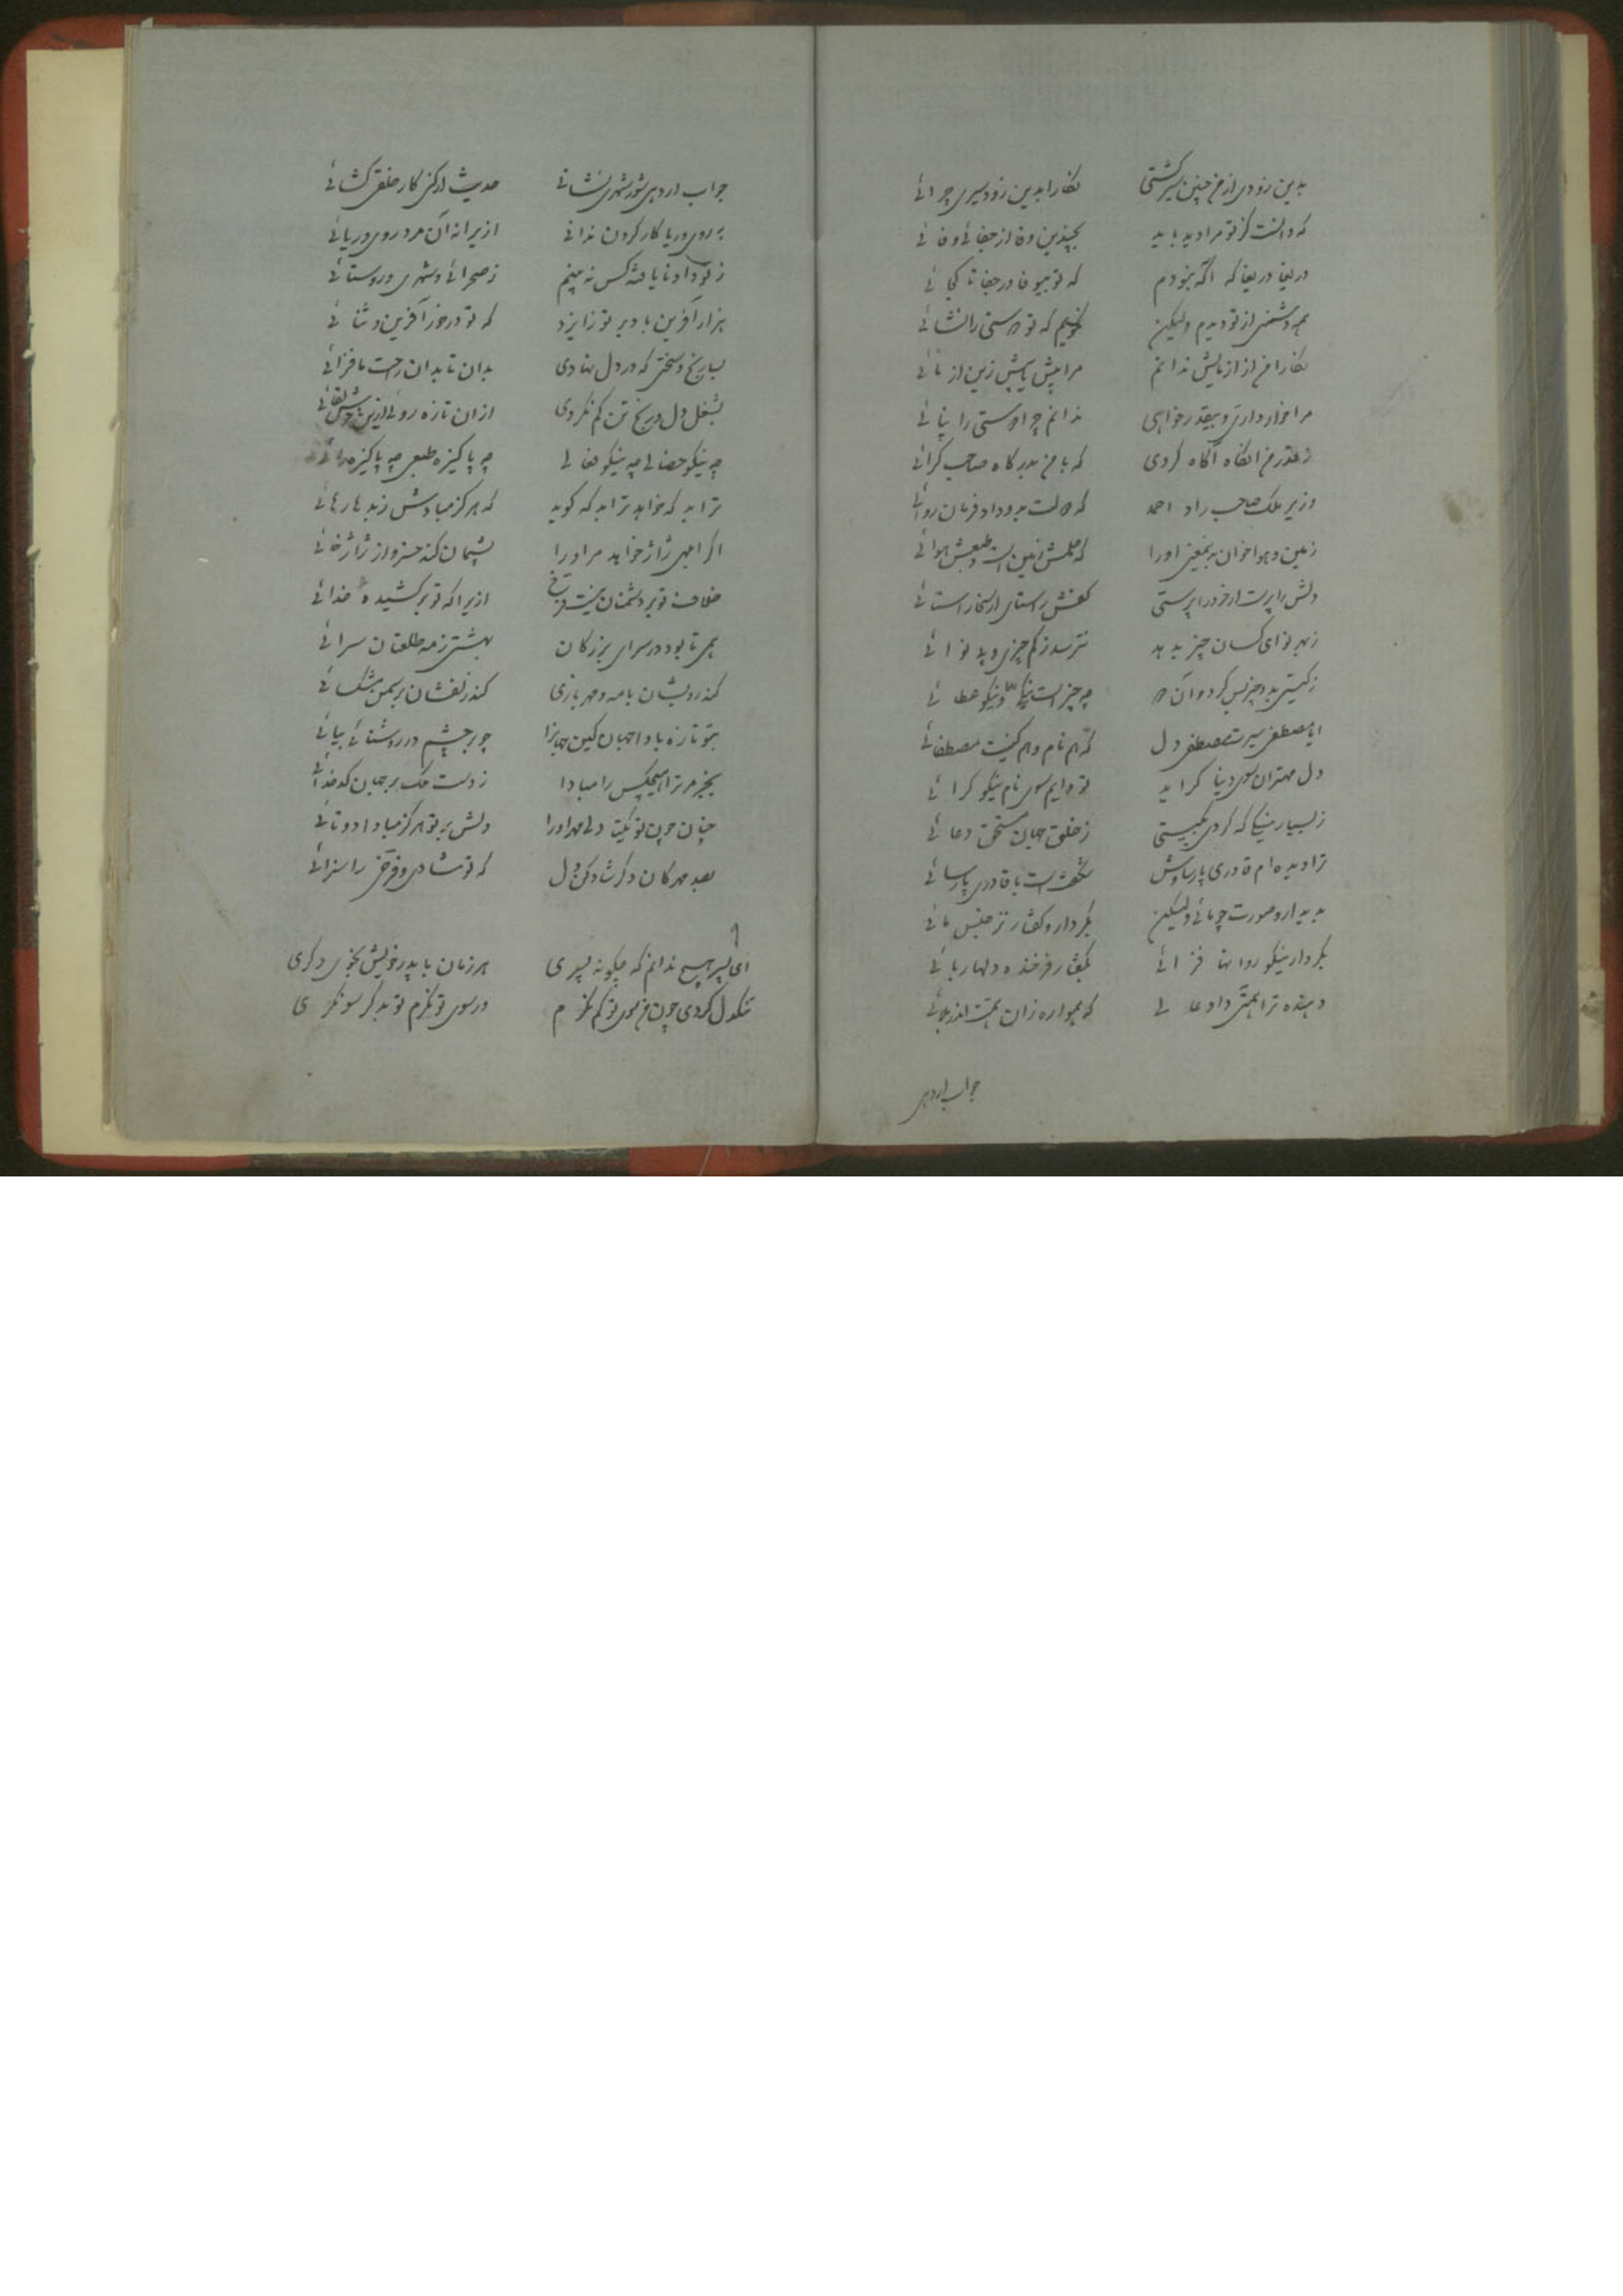 بدین زودی از من چنین سیر گشتی نگارا بدین زود سیری چرائی
که دانست کز تو مرا دید باید بچندین وفا از جفائی وفائی
دریغا دریغا که اگه نبودم که تو بیوفا در جفا تا کجائی
همه دشمنی از تو دیدم ولیکن نگویم که تو دوستی را نشائی
نگارا من از ازمایش ندانم مرا پیش پیش زین ازمائی
مرا خوار داری و بیقدر خواهی ندانم چرا دوستی را نپائی
ز قدر من انگاه آگاه گردی که با من بدرگاه صاحب گرائی
وزیر ملک صاحب راد احمد که دولت بدو داد فرمان روائی
زمین و هوا خوان بدین معنی اورا که حلمش زمین است و طبعش هوائی
دلش را پرست ار خرد را پرستی کفش را ستای ار سخا را ستائی
ز بهر نوای کسان چیز بدهد نترسد ز کم چیزی و بی نوائی
ز گیتی بدو چیز بس کرد و آن دو چه چیز است نیکی و نیکو عطائی
ایا مصطفی سیرت مصطفی دل که هم نام و هم کنیت مصطفائی
دل مهتران سوی دنیا گراید تو دایم سوی نام نیکو گرائی
ز بسیار نیکی که کردی بگیتی ز خلق جهان مستحق دعائی
ترا دیده ام قادری پارساوش شگفت است با قادری پارسائی
بدیدار و صورت چو مائی ولیکن بکردار و گفتار نز جنس مائی
بکردار نیکو روانها فزائی بگفتار فرخنده دلها ربائی
دهنده ترا همتی داد عالی که همواره زان همت اندر بلائی
جواب ار دهی
جواب ار دهی شور شهری نشانی حدیث ار کنی کار خلقی گشائی
به روی و ریا کار کردن ندانی ازیرا نه آن مرد روی و ریائی
ز تو داد نا یافته کس نه بینم ز صحرائی و شهری و روستائی
هزار آفرین باد بر تو ز ایزد که تو در خور آفرین و ثنائی
بسا رنج و سختی که در دل نهادی بدان تا بدان راحت ما فزائی
بشغل دل و رنج تن کم نکردی از ان تازه روئی ازین خوش لقائی
چه نیکو خصالی چه نیکو فعالی چه پاکیزه طبعی چه پاکیزه رائی
ترا بد که خواهد ترا بد که گوید که هرگز مبادش ز بد ها رهائی
اگر ابهی ژاژ خواهد مر اورا پشیمان کند خسرو از ژاژخائی
خلاف تو بر دشمنان نیست فرخ ازیرا که تو بر کشیده خدائی
همی تا بود در سرای بزرگان بهشتی ز مه طلعتان سرائی
کند رویشان با مه و مهر بازی کند زلفشان بر سمن مشک سائی
بتو تازه باد اجهان کین جهانرا چو بر چشم در روشنائی بیائی
بجز مر ترا هیچکس را مبادا ز دست ملک بر جهان کدخدائی
چنان چون تو یکتا دلی مهر اورا دلش بر تو هرگز مبادا دوتائی
بصد مهرگان دگر شاد کن دل که تو شادی و فرخی را سزائی
ای پسر هیچ ندانم که چگونه پسری هر زمان با پدر خویش بخوی دگری
تنگدل گردی چون من سوی تو کم نگرم ور سوی تو نگرم تو بدگر سو نگری